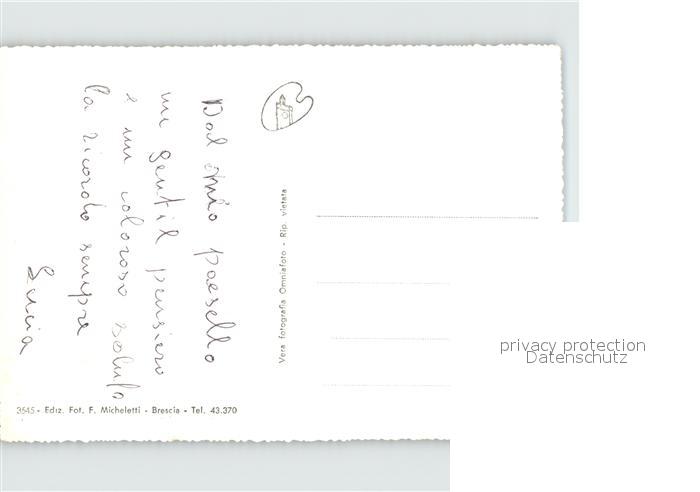 Dal mio paesello
un gentil pensiero
e un caloroso saluto
la ricordo sempre
Lucia
Vera fotografia Omniafoto - Rip. vietata
3545 - Ediz. Fot. F. Micheletti - Brescia - Tel. 43.370
privacy protection
Datenschutz